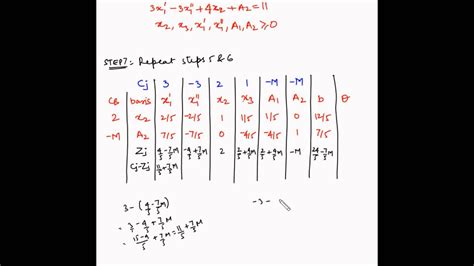 3x₁' - 3x₁'' + 4x₂ + A₂ = 11
x₂, x₃, x₁', x₁'', A₁, A₂ ≥ 0
STEP 7: Repeat steps 5 & 6
Cj 3 -3 2 1 -M -M
CB basis x₁' x₁'' x₂ x₃ A₁ A₂ b θ
2 x₂ 2/5 -2/5 1 1/5 1/5 0 12/5
-M A₂ 7/5 -7/5 0 -4/5 -4/5 1 7/5
Zj 4/5 - 7/5 M -4/5 + 7/5 M 2 2/5 + 4/5 M 2/5 + 4/5 M -M 24/5 - 7/5 M
Cj - Zj 11/5 + 7/5 M
3 - (4/5 - 7/5 M) -3 -
= 3 - 4/5 + 7/5 M
= 15-4/5 + 7/5 M = 11/5 + 7/5 M